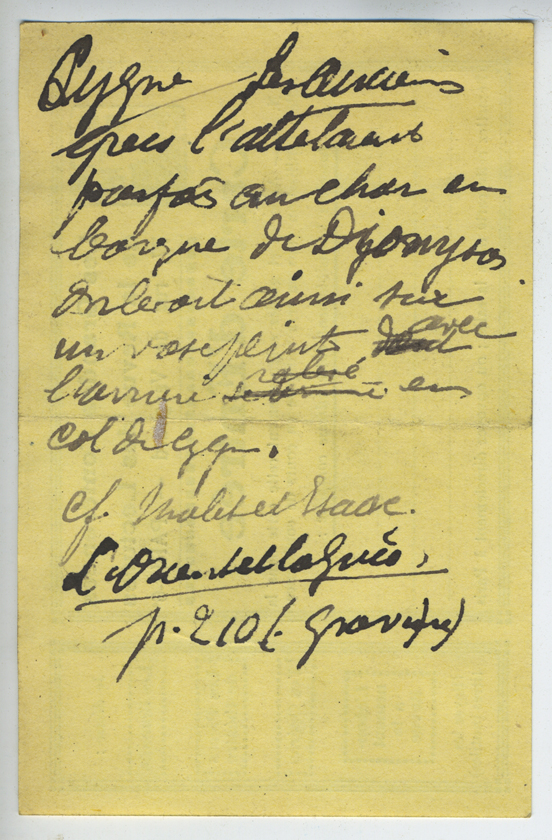 Cygne Les anciens
grecs l'attelaient
parfois au char en
barque de Dionysos
On le voit ainsi sur
un vase peint dont avec
l'arrière se termine relevé en
col de cygne.
cf. Malet et Isaac.
L'Orient et la Grèce,
p. 210 (gravure)